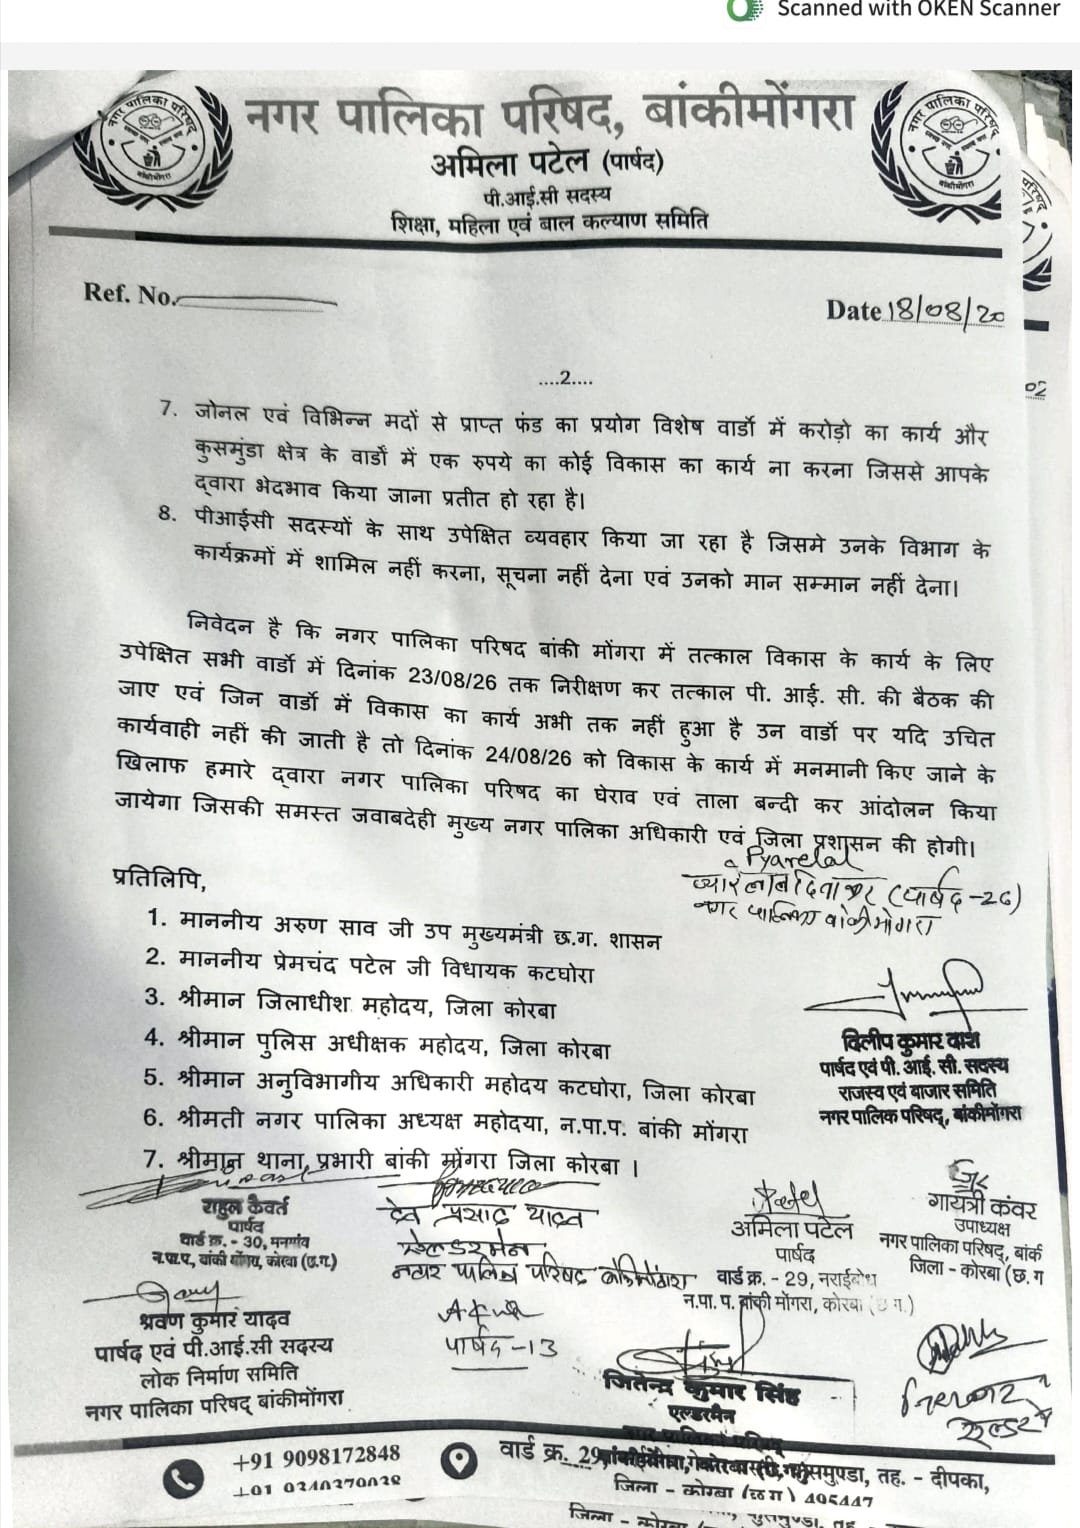 Scanned with OKEN Scanner
नगर पालिका परिषद, बांकीमोंगरा
अमिला पटेल (पार्षद)
पी.आई.सी सदस्य
शिक्षा, महिला एवं बाल कल्याण समिति
Ref. No.
Date 18/08/20
....2....
02
7. जोनल एवं विभिन्न मदों से प्राप्त फंड का प्रयोग विशेष वार्डो में करोड़ो का कार्य और
कुसमुंडा क्षेत्र के वार्डों में एक रुपये का कोई विकास का कार्य ना करना जिससे आपके
द्वारा भेदभाव किया जाना प्रतीत हो रहा है।
8. पीआईसी सदस्यों के साथ उपेक्षित व्यवहार किया जा रहा है जिसमे उनके विभाग के
कार्यक्रमों में शामिल नहीं करना, सूचना नहीं देना एवं उनको मान सम्मान नहीं देना।
निवेदन है कि नगर पालिका परिषद बांकी मोंगरा में तत्काल विकास के कार्य के लिए
उपेक्षित सभी वार्डो में दिनांक 23/08/26 तक निरीक्षण कर तत्काल पी. आई. सी. की बैठक की
जाए एवं जिन वार्डो में विकास का कार्य अभी तक नहीं हुआ है उन वार्डो पर यदि उचित
कार्यवाही नहीं की जाती है तो दिनांक 24/08/26 को विकास के कार्य में मनमानी किए जाने के
खिलाफ हमारे द्वारा नगर पालिका परिषद का घेराव एवं ताला बन्दी कर आंदोलन किया
जायेगा जिसकी समस्त जवाबदेही मुख्य नगर पालिका अधिकारी एवं जिला प्रशासन की होगी।
Pyarelal
प्यारेलाल दिवाकर (पार्षद -26)
नगर पालिका बांकीमोंगरा
प्रतिलिपि,
1. माननीय अरुण साव जी उप मुख्यमंत्री छ.ग. शासन
2. माननीय प्रेमचंद पटेल जी विधायक कटघोरा
3. श्रीमान जिलाधीश महोदय, जिला कोरबा
4. श्रीमान पुलिस अधीक्षक महोदय, जिला कोरबा
5. श्रीमान अनुविभागीय अधिकारी महोदय कटघोरा, जिला कोरबा
6. श्रीमती नगर पालिका अध्यक्ष महोदया, न.पा.प. बांकी मोंगरा
7. श्रीमान थाना प्रभारी बांकी मोंगरा जिला कोरबा ।
दिलीप कुमार दाश
पार्षद एवं पी. आई. सी. सदस्य
राजस्व एवं बाजार समिति
नगर पालिक परिषद्, बांकीमोंगरा
राहुल कैवर्त
पार्षद
वार्ड क्र. - 30, मनगांव
न.पा.प. बांकी मोंगरा, कोरबा (छ.ग.)
देव प्रसाद यादव
एल्डरमेन
नगर पालिका परिषद बांकीमोंगरा
Patel
अमिला पटेल
पार्षद
वार्ड क्र. - 29, नराईबोध
न.पा. प. बांकी मोंगरा, कोरबा (छ ग.)
गायत्री कंवर
उपाध्यक्ष
नगर पालिका परिषद्, बांकी
जिला - कोरबा (छ. ग
श्रवण कुमार यादव
पार्षद एवं पी.आई.सी सदस्य
लोक निर्माण समिति
नगर पालिका परिषद् बांकीमोंगरा
पार्षद -13
जितेन्द्र कुमार सिंह
एल्डरमैन
+91 9098172848
वार्ड क्र. 29, तह. - दीपका,
जिला - कोरबा (छ ग) 495447